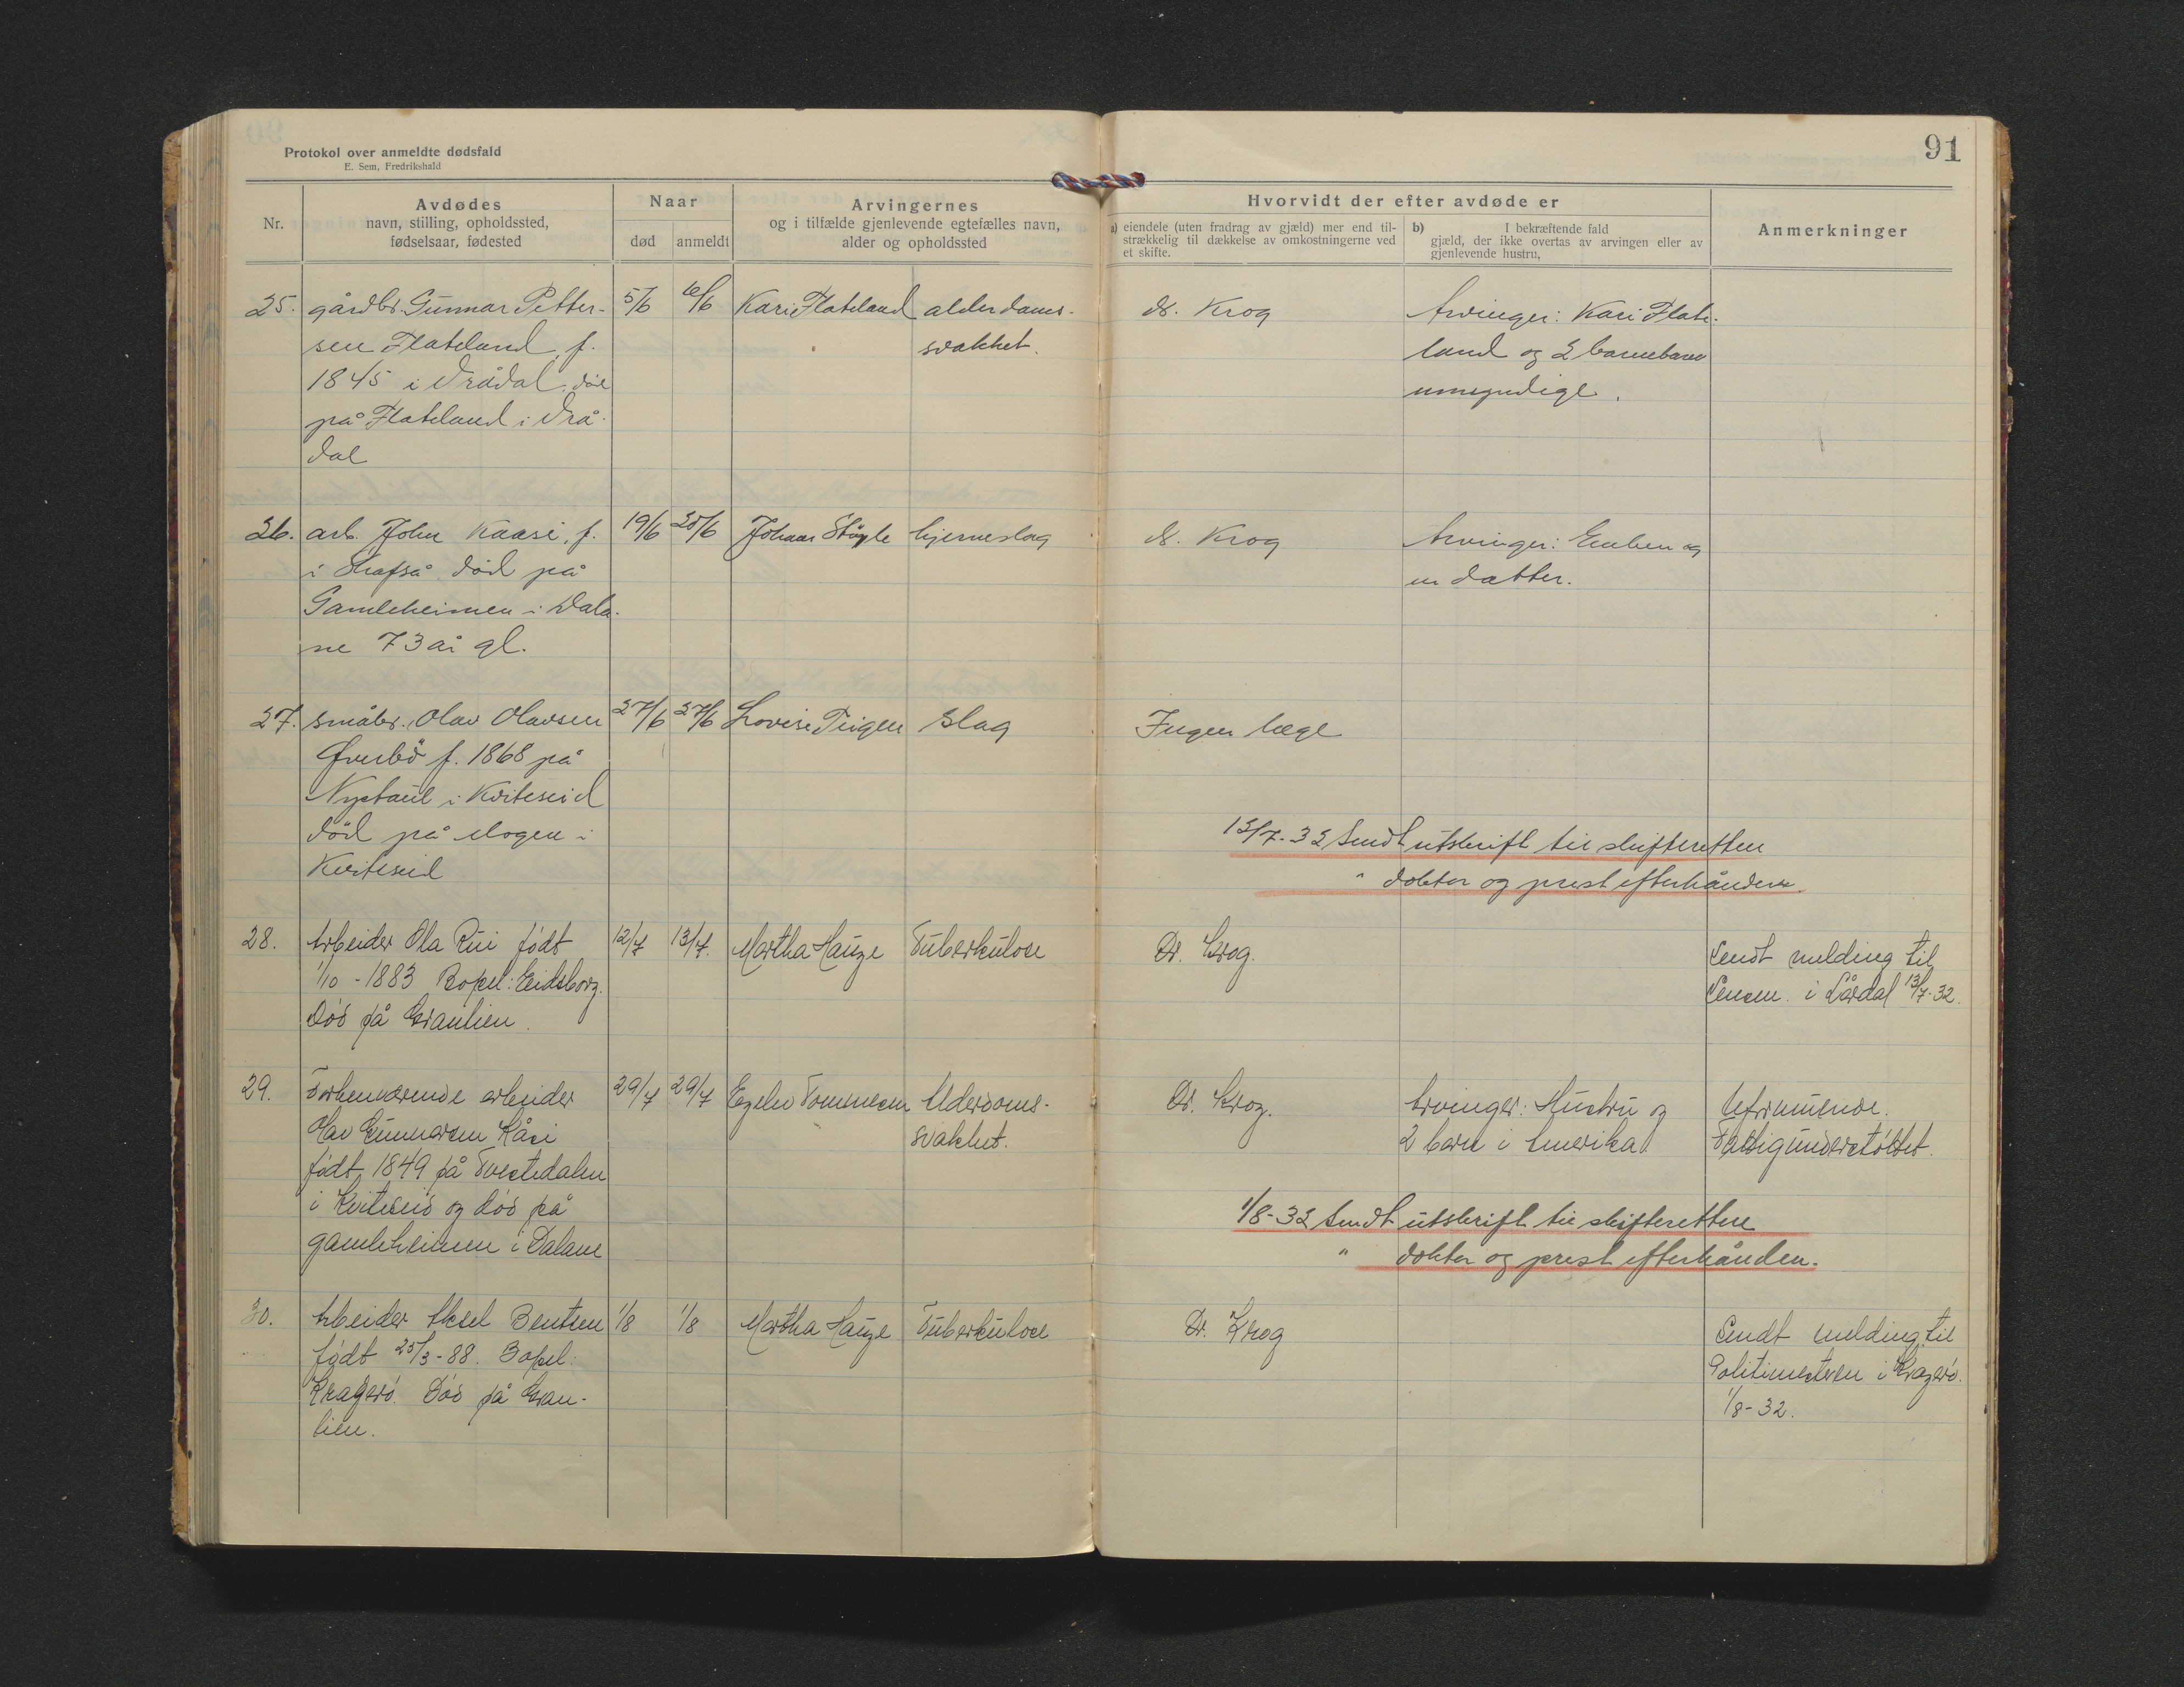 Protokol over anmeldte dødsfald
E. Sem, Fredrikshald
91
Nr.
Avdødes
navn, stilling, opholdssted,
fødselsaar, fødested
Naar
død
anmeldt
Arvingernes
og i tilfælde gjenlevende egtefælles navn,
alder og opholdssted
Hvorvidt der efter avdøde er
a) eiendele (uten fradrag av gjæld) mer end til-
strækkelig til dækkelse av omkostningerne ved
et skifte.
b) I bekræftende fald
gjæld, der ikke overtas av arvingen eller av
gjenlevende hustru,
Anmerkninger
25. gårdbr. Gunnar Petter- 5/6 6/6 Kari Flateland alderdoms- dr. Krog Arvinger: Kari Flate-
sen Flateland, f. svakhet. land og 2 barnebarn
1845 i Vrådal, død umyndige.
på Flateland i Vrå-
dal
26. arb. John Kaasi, f. 19/6 20/6 Johan hjerneslag dr. Krog Arvinger: Enken og
i Hafså, død på en datter.
Gamleheimen i Dala-
ne 73 år gl.
27. småbr. Olav Olavsen 27/6 27/6 Lovise Teigen slag Ingen læge
Øverbö f. 1868 på
Nystaul i Kviteseid
död på Mogen i
Kviteseid
13/7-32 Sendt utskrift til skifteretten
" doktor og prest efterhånden.
28. Arbeider Ola Rui født 12/7 13/7. Martha Hauge Tuberkulose Dr. Krog. Sendt melding til
1/10 - 1883 Bopel: Eidsborg. Lensm. i Lårdal 13/7-32.
Død på Granlien.
29. Forhenværende arbeider 29/7 29/7 Egelev Tommesen Alderdoms- Dr. Krog. Arvinger: Hustru og Uformuende.
Olav Gunnarsen Kåsi svakhet. 2 barn i Amerika Fattigunderstøttet.
født 1849 på Tveitedalen
i Kviteseid og død på
gamleheimen i Dalane
1/8-32 Sendt utskrift til skifteretten
" doktor og prest efterhånden.
30. Arbeider Aksel Bentsen 1/8 1/8 Martha Hauge Tuberkulose Dr. Krog Sendt melding til
født 25/3-88. Bopel: Politimesteren i Kragerø.
Kragerø. Død på Gran- 1/8-32.
lien.